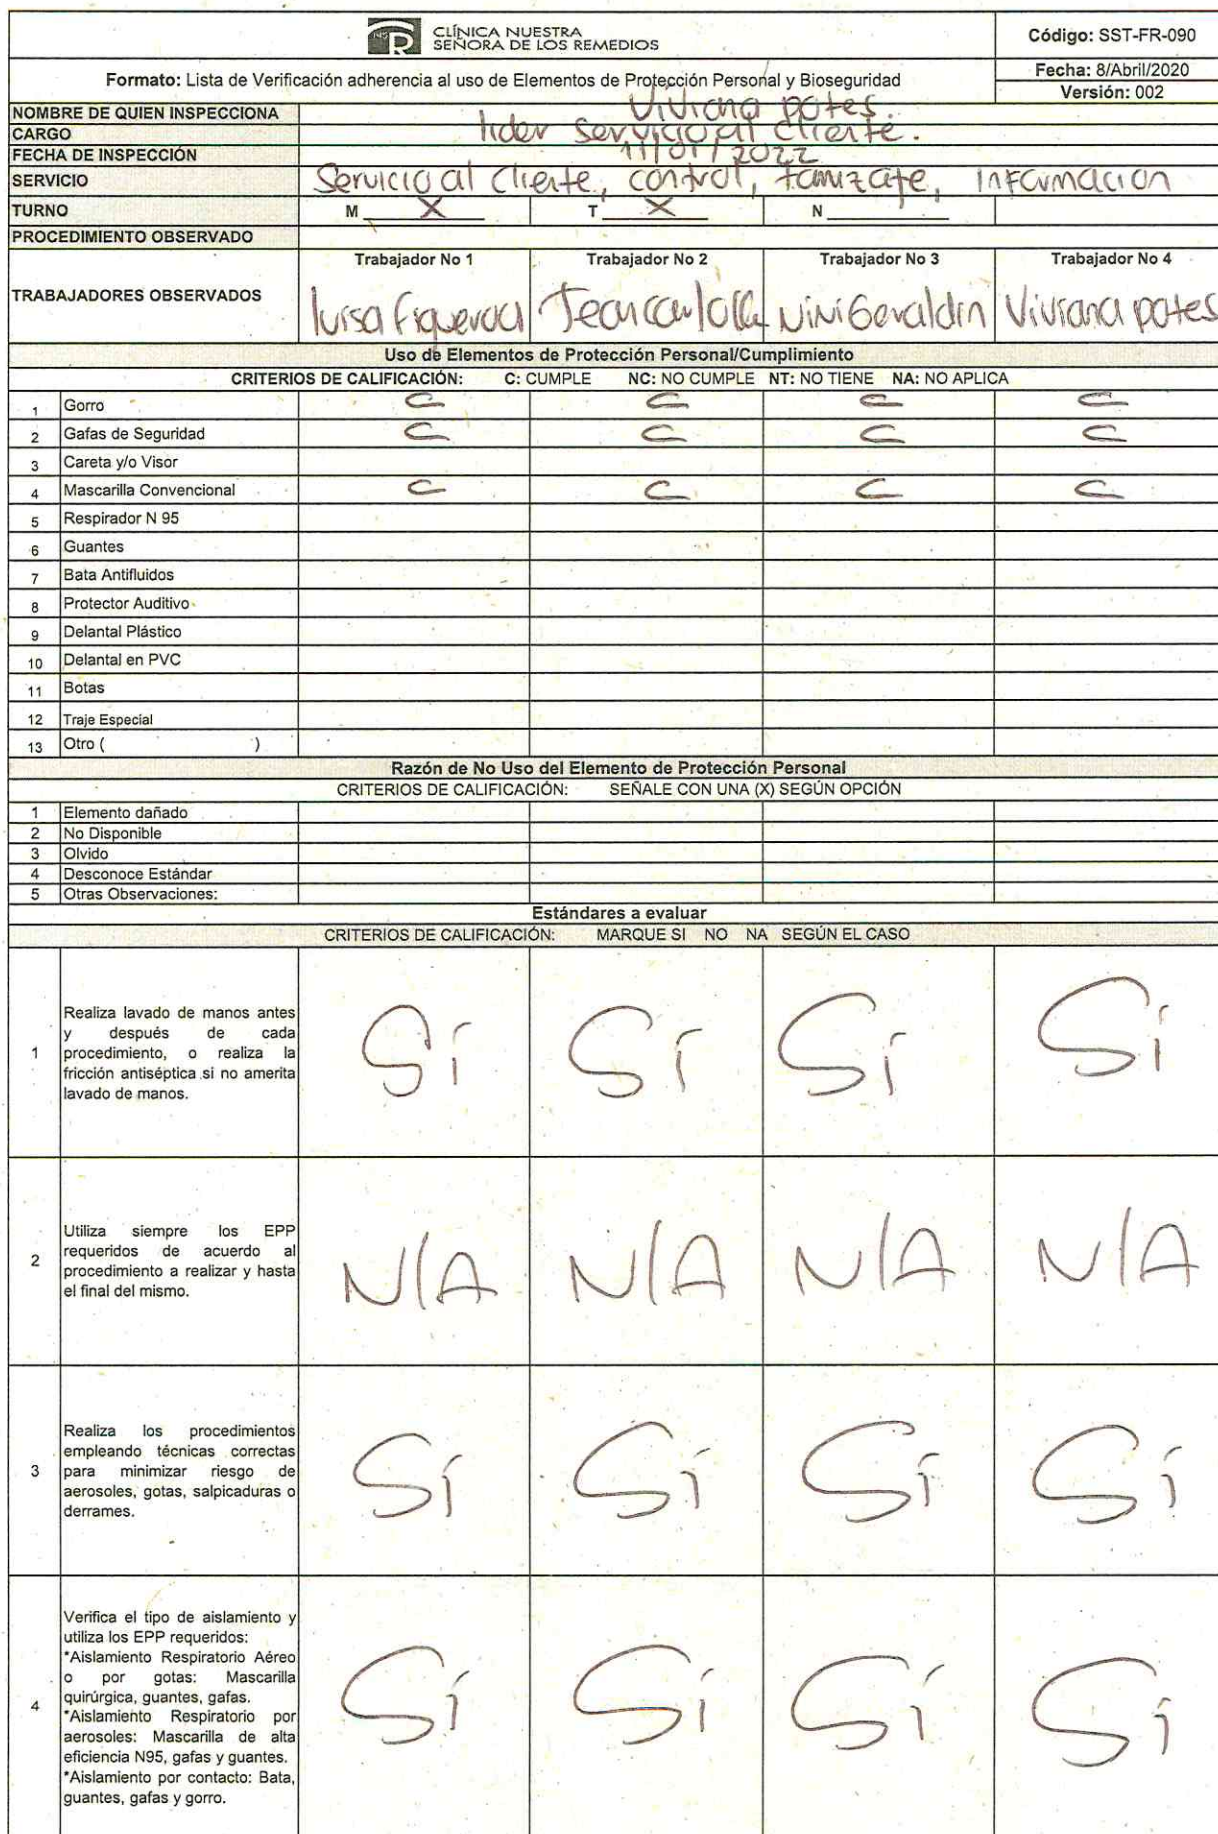 CLÍNICA NUESTRA
SEÑORA DE LOS REMEDIOS
Código: SST-FR-090
Formato: Lista de Verificación adherencia al uso de Elementos de Protección Personal y Bioseguridad
Fecha: 8/Abril/2020
Versión: 002
NOMBRE DE QUIEN INSPECCIONA Viviana potes.
CARGO lider servicio al cliente.
FECHA DE INSPECCIÓN 11/01/2022
SERVICIO Servicio al cliente, control, tamizaje, Información
TURNO M X T X N
PROCEDIMIENTO OBSERVADO
Trabajador No 1 Trabajador No 2 Trabajador No 3 Trabajador No 4
TRABAJADORES OBSERVADOS luisa Figueroa Viviana potes
Uso de Elementos de Protección Personal/Cumplimiento
CRITERIOS DE CALIFICACIÓN: C: CUMPLE NC: NO CUMPLE NT: NO TIENE NA: NO APLICA
1 Gorro C C C C
2 Gafas de Seguridad C C C C
3 Careta y/o Visor
4 Mascarilla Convencional C C C C
5 Respirador N 95
6 Guantes
7 Bata Antifluidos
8 Protector Auditivo
9 Delantal Plástico
10 Delantal en PVC
11 Botas
12 Traje Especial
13 Otro ( )
Razón de No Uso del Elemento de Protección Personal
CRITERIOS DE CALIFICACIÓN: SEÑALE CON UNA (X) SEGÚN OPCIÓN
1 Elemento dañado
2 No Disponible
3 Olvido
4 Desconoce Estándar
5 Otras Observaciones:
Estándares a evaluar
CRITERIOS DE CALIFICACIÓN: MARQUE SI NO NA SEGÚN EL CASO
Realiza lavado de manos antes
y después de cada
1 procedimiento, o realiza la
fricción antiséptica si no amerita
lavado de manos.
Sí Sí Sí Sí
Utiliza siempre los EPP
requeridos de acuerdo al
2 procedimiento a realizar y hasta
el final del mismo.
N/A N/A N/A N/A
Realiza los procedimientos
empleando técnicas correctas
3 para minimizar riesgo de
aerosoles, gotas, salpicaduras o
derrames.
Sí Sí Sí Sí
Verifica el tipo de aislamiento y
utiliza los EPP requeridos:
*Aislamiento Respiratorio Aéreo
o por gotas: Mascarilla
4 quirúrgica, guantes, gafas.
*Aislamiento Respiratorio por
aerosoles: Mascarilla de alta
eficiencia N95, gafas y guantes.
*Aislamiento por contacto: Bata,
guantes, gafas y gorro.
Sí Sí Sí Sí